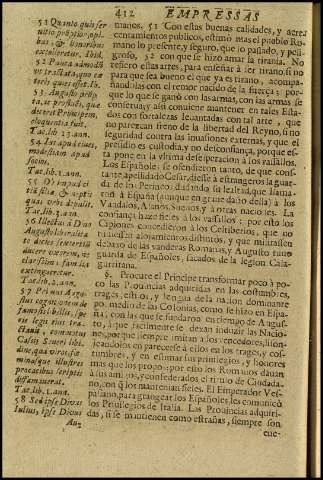 412 EMPRESSAS
51 Quanto quis ser
vitio promptior, opi-
bus, & honoribus
extolleretur. Ibid.
52 Pauca admodū
vi tractata, quo cæ
teris quies esset. Ib.
53 Augusto prōp
ta, ac profluēs, quæ
deceret Principem,
eloquentia fuit.
Tac. lib. 13. ann.
54 Ius apud cives,
modestiam apud
socios.
Tac. lib. 1. ann.
quis verò depulit.
Tac. lib. 3. ann.
56 Illectus à Divo
Augusto liberalita-
te decies sestertiū
ducere uxorem, ne
clarissima familia
extingueretur.
Tac. lib. 2. ann.
57 Primus Augu-
stus cognitionem de
famosis libellis, spe-
cie legis eius tra-
ctavit, commotus
Cassij Severi libi-
dine, qua viros, fœ-
minasque illustres
procacibus scriptis
diffamaverat.
Tac. lib. 1. ann.
58 Sed ipse Divus
Iulius, ipse Divus
Aug
manos. 51 Con estas buenas calidades, y acre
centamientos publicos, estimó mas el pueblo Ro-
mano lo presente, y seguro, que lo passado, y peli-
groso, 52 con que se hizo amar la tirania. No
refiero estas artes, para enseñar à ser tirano, sino
para que sea bueno el que ya es tirano, acompa-
ñandolas con el temor nacido de la fuerça; por-
que lo que se ganò con las armas, con las armas se
conserva; y assi conviene mantener en tales Esta-
dos con fortalezas levantadas con tal arte, que
no parezcan freno de la libertad del Reyno, sino
seguridad contra las invasiones externas, y que el
presidio es custodia, y no desconfiança, porque es-
ta pone en la ultima desesperacion à los vasallos.
Los Españoles se ofendieron tanto, de que cons-
tante apellidado Cesar, diesse à estrangeros la guar-
da de los Perineos, dudando su lealtad, que llama-
ron à España (aunque en grave daño della) à los
Vandalos, Alanos, Suevos, y à otras naciones. La
confiança haze fieles à los vasallos: por esto los
Cipiones concedieron à los Celtiberios, que no
tuviessen alojamientos distintos, y que militassen
debaxo de las vanderas Romanas, y Augusto tuvo
guarda de Españoles, sacados de la legion Cala-
gurritana.
§. Procure el Principe transformar poco à po-
co las Provincias adquiridas en las costumbres,
trages, estilos, y lengua de la nacion dominante
por medio de las Colonias, como se hizo en Espa-
ña, con las que se fundaron en tiempo de Augus-
to, à que facilmente se dexan induzir las Nacio-
nes, porque siempre imitan à los vencedores, lison-
jeandolos en parecerse à ellos en los trages, y cos-
tumbres, y en estimar sus privilegios, y honores
mas que los propios: por esto los Romanos davan
à sus amigos, y confederados el titulo de Ciudadā-
no, con q̃ los mantenian fieles. El Emperador Ves-
pasiano, para grangear los Españoles, les comunicò
los Privilegios de Italia. Las Provincias adquiri-
das, si se mantienen como estrañas, siempre son
ene-